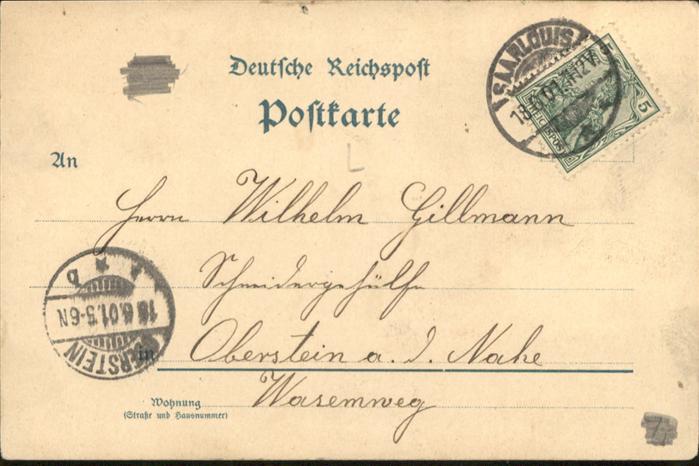 Deutsche Reichspost
Postkarte
SAARLOUIS
18.6.01.11-12V.
5
An
L
Herrn Wilhelm Gillmann
Schneidergehülfe
in Oberstein a. d. Nahe
Wasemweg
Wohnung
(Straße und Hausnummer)
OBERSTEIN
18.6.01.5-6N
* b